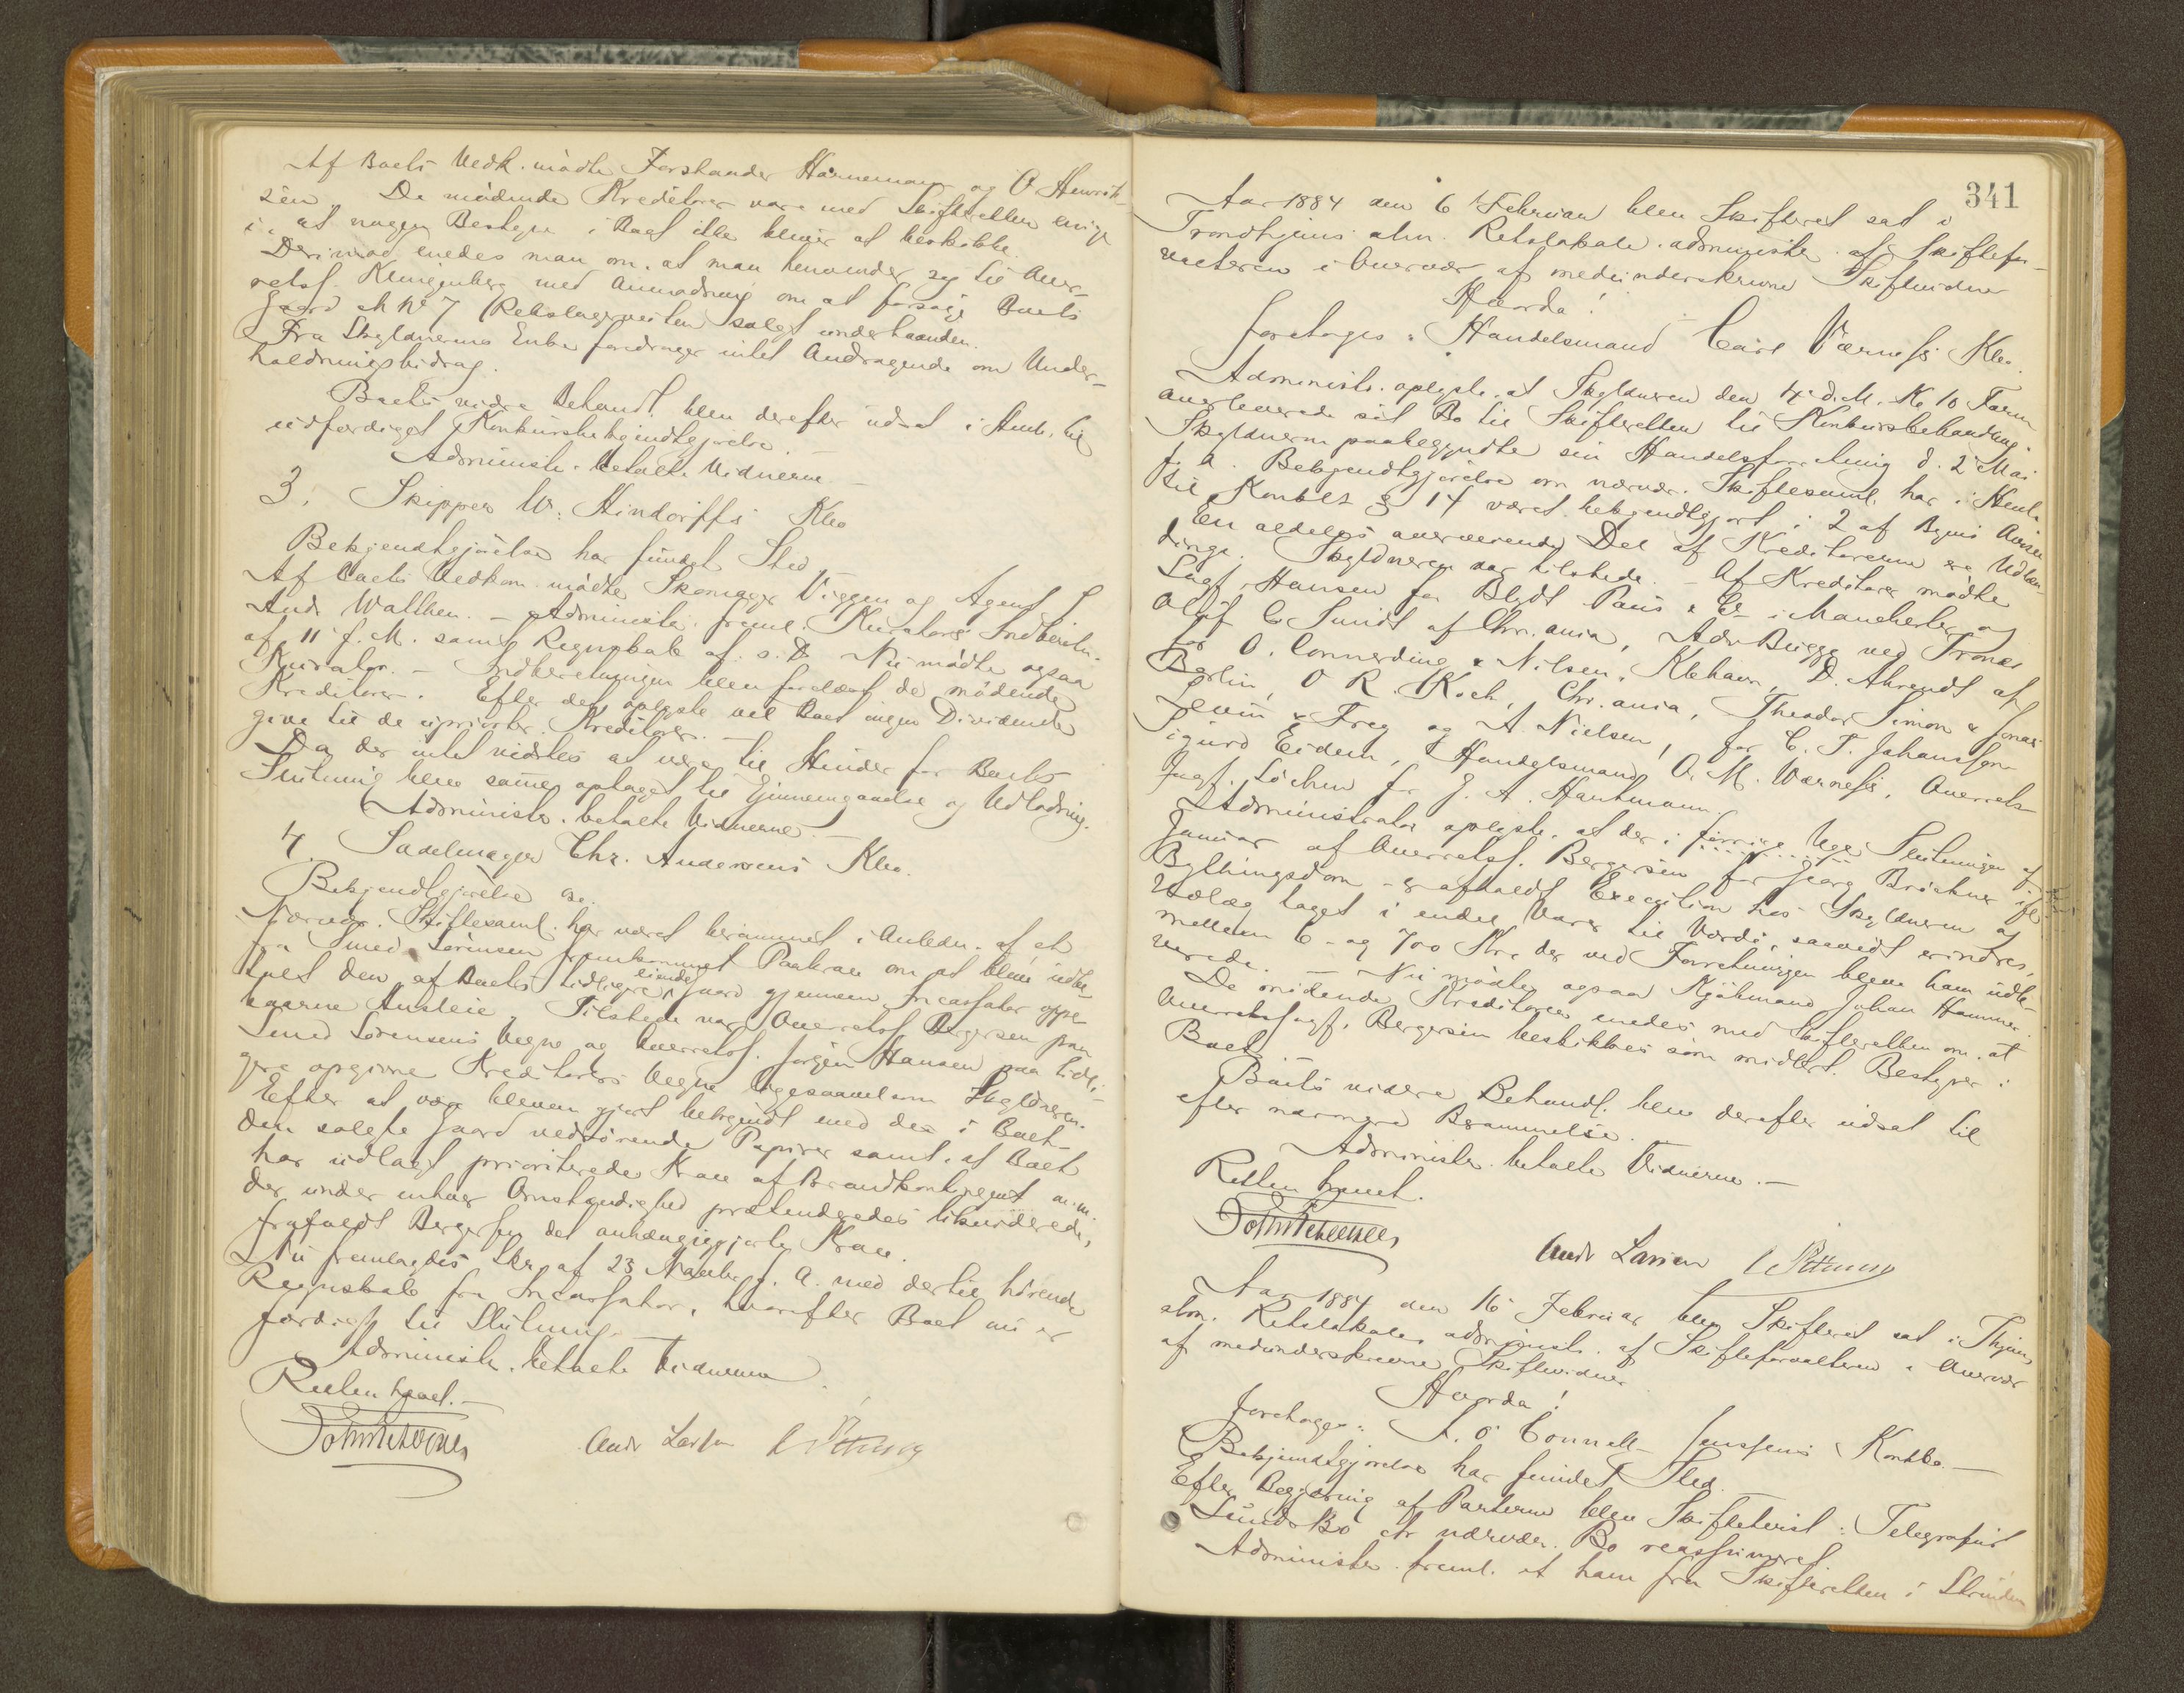 Af Boets Vedk. mødte Forstander Hannemann og O Henrik-
sen. De mødende Kreditorer vare med Skifteretten enige
i, at nogen Bestyrer i Boet ikke bliver at beskikke.
Derimod enedes man om, at man henvender sig til Over-
retssf. Klingenberg med Anmodning om at forsøge Boets
Gaard M No 7 Rebslagerveiten solgt underhaanden.
Fra Skyldnerens Enke foredrages intet Andragende om Under-
holdningsbidrag.
Boets videre Behandl. blev derefter udsat i Henh. til
udfærdiget Konkursbekjendtgjørelse.
Administr. betalte Vidnerne.
3. Skipper W. Hindorffs Kbo
Bekjendtgjørelse har fundet Sted.
Af Boets Vedkom. mødte Skomager Viggen og Agent
Andr Wallken. – Administr. freml. Kurators Indberetn.
af 11 f. M. samt Regnskab af s. D. Nu mødte ogsaa
Kurator. – Indberetningen blev forelæst de mødende
Kreditorer. Efter det oplyste vil Boet ingen Dividende
give til de uprioriter. Kreditorer.
Da der intet vidstes at være til Hinder for Boets
Slutning blev samme optaget til Gjennemgaaelse og Udlodning.
Administr. betalte Vidnerne.
4. Sadelmager Chr. Andersens Kbo.
Bekjendtgjørelse
Nærvær. Skiftesaml. har været berammet i Anledn. af et
fra Smed Sørensen fremkommet Paakrav om at blive udbe-
talt den af Boets tidligere eiende Gaard gjennem Incassator oppe
baarne Husleie. Tilstede var Overretssf. Bergersen paa
Smed Sørensens Vegne og Overretssf. Jørgen Hansen paa tidli-
gere opgivne Kreditorers Vegne ligesaavelsom Skyldneren.
Efter at være bleven gjort bekjendt med de i Boet
den solgte Gaard vedrørende Papirer samt, at Boet
har udlagt prioriterede Krav af Brandkontingent m. m.
der under enhver Omstændighed prætenderedes likviderede,
frafaldt Bergersen det anhængiggjorte Krav.
Nu fremlagdes Skr. af 23 Novbr f. A. med dertil hørende
Regnskab fra Incassator, hvorefter Boet nu er
færdigt til Slutning.
Administr. betalte Vidnerne
Retten hævet.
Andr Larsen
341
Aar 1884 den 6 Februar blev Skifteret sat i
Trondhjems alm. Retslokale administr. af Skiftefor-
valteren i Overvær af medunderskrevne Skiftevidner
Hvorda!
foretoges: Handelsmand Carl Værness Kbo.
Administr. oplyste, at Skyldneren den 4 d. M. Kl 10 Form
overleverede sit Bo til Skifteretten til Konkursbehandling.
Skyldneren paabegyndte sin Handelsforretning d. 2 Mai
f. A. Bekjendtgjørelse om nærvær. Skiftesaml. har i Henh.
til Konkl § 14 været bekjendtgjort i 2 af Byens Aviser
En aldeles overveiende Del af Kreditorerne er Udlæn-
dinge. Skyldneren var tilstede. – Af Kreditorer mødte
Sagf. Hansen for Blydt Paus & Co i Manchester og
Oluf C Smidt af Chr.ania, Adv. Bugge ved Trones
for O. Connerding & Nilsen, Kbhavn, D. Ahrendt af
Berlin, O R. Koch, Chr.ania, Theodor Simon & Jonas
Levin & Frey og A. Nielsen, for C. F. Johannson
Sigurd Eidem, Handelsmand O. M. Værness, Overrets-
sagf. Løchen for J. A. Hartmann.
Administrator oplyste, at der i forrige Uge Slutningen af
Januar af Overretssf. Bergersen for Georg Brøchner ifl.
Bythingsdom er afholdt Execution hos Skyldneren og
Udlæg taget i endel Varer til Værdi, saavidt erindres,
mellem 6- og 700 Kr., der ved Forretningen bleve ham udle-
verede. – Nu mødte ogsaa Kjøbmand Johan Hammer.
De mødende Kreditorer enedes med Skifteretten om at
Overretssagf. Bergersen beskikkes som midlert. Bestyrer i
Boet.
Boets videre Behandl. blev derefter udsat til
efter nærmere Berammelse.
Administr. betalte Vidnerne. –
Retten hævet.
Andr Larsen
Aar 1884 den 16 Februar blev Skifteret sat i Thjems
alm. Retslokale, administr. af Skifteforvalteren i Overvær
af medunderskrevne Skiftevidner
Hvorda!
foretoges: A. O' Connell Jenssens Konkbo. –
Bekjendtgjørelse har fundet Sted.
Efter Begjæring af Parterne blev Skiftetvist: Telegrafist
Lunds Bo ctr nærvær. Bo reassumeret.
Administr. freml. et ham fra Skifteretten i Strinden